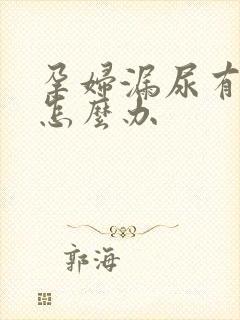 孕婦漏尿有
怎麼办
郭海